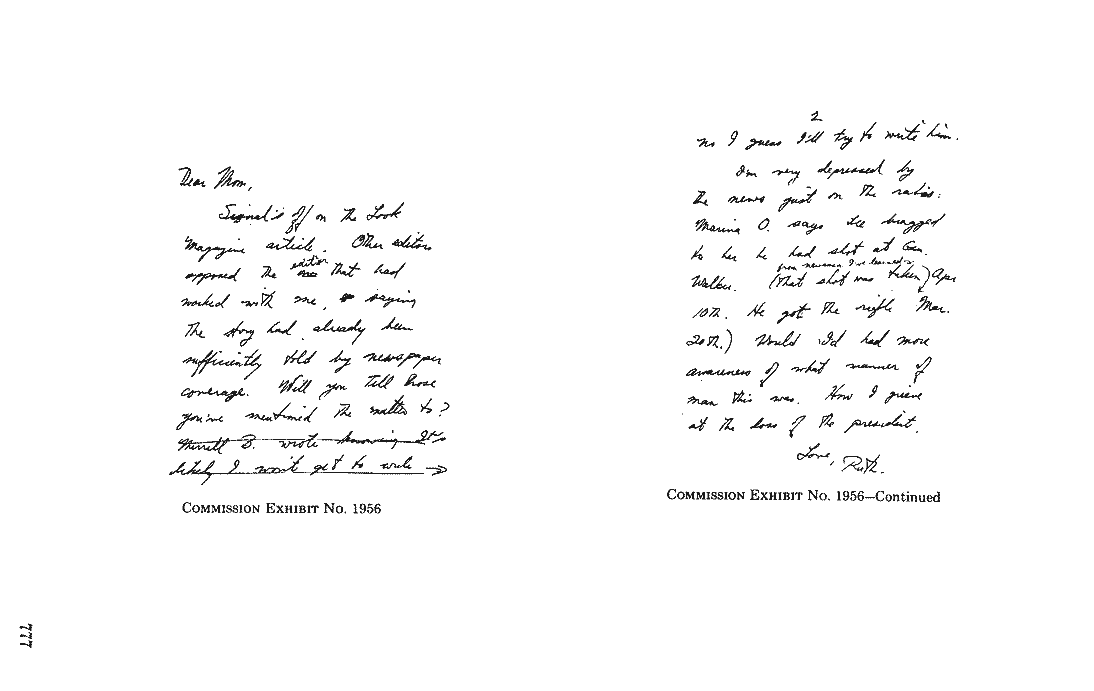 Dear Mom,
Signal's off on the Look
Magazine article. Other editors
opposed the editor that had
worked with me, saying
the story had already been
sufficiently told by newspaper
coverage. Will you tell those
you've mentioned the matter to?
Merrell B. wrote knowing It's
likely I won't get to write →
COMMISSION EXHIBIT No. 1956
2
no I guess I'll try to write him.
I'm very depressed by
the news just on the radio:
Marina O. says Lee bragged
to her he had shot at Gen.
from newsmen I've learned
Walker. (That shot was taken) Apr
10th. He got the rifle Mar.
20th.) Would I'd had more
awareness of what manner of
man this was. How I grieve
at the loss of the president.
Love,
Ruth.
COMMISSION EXHIBIT No. 1956—Continued
777